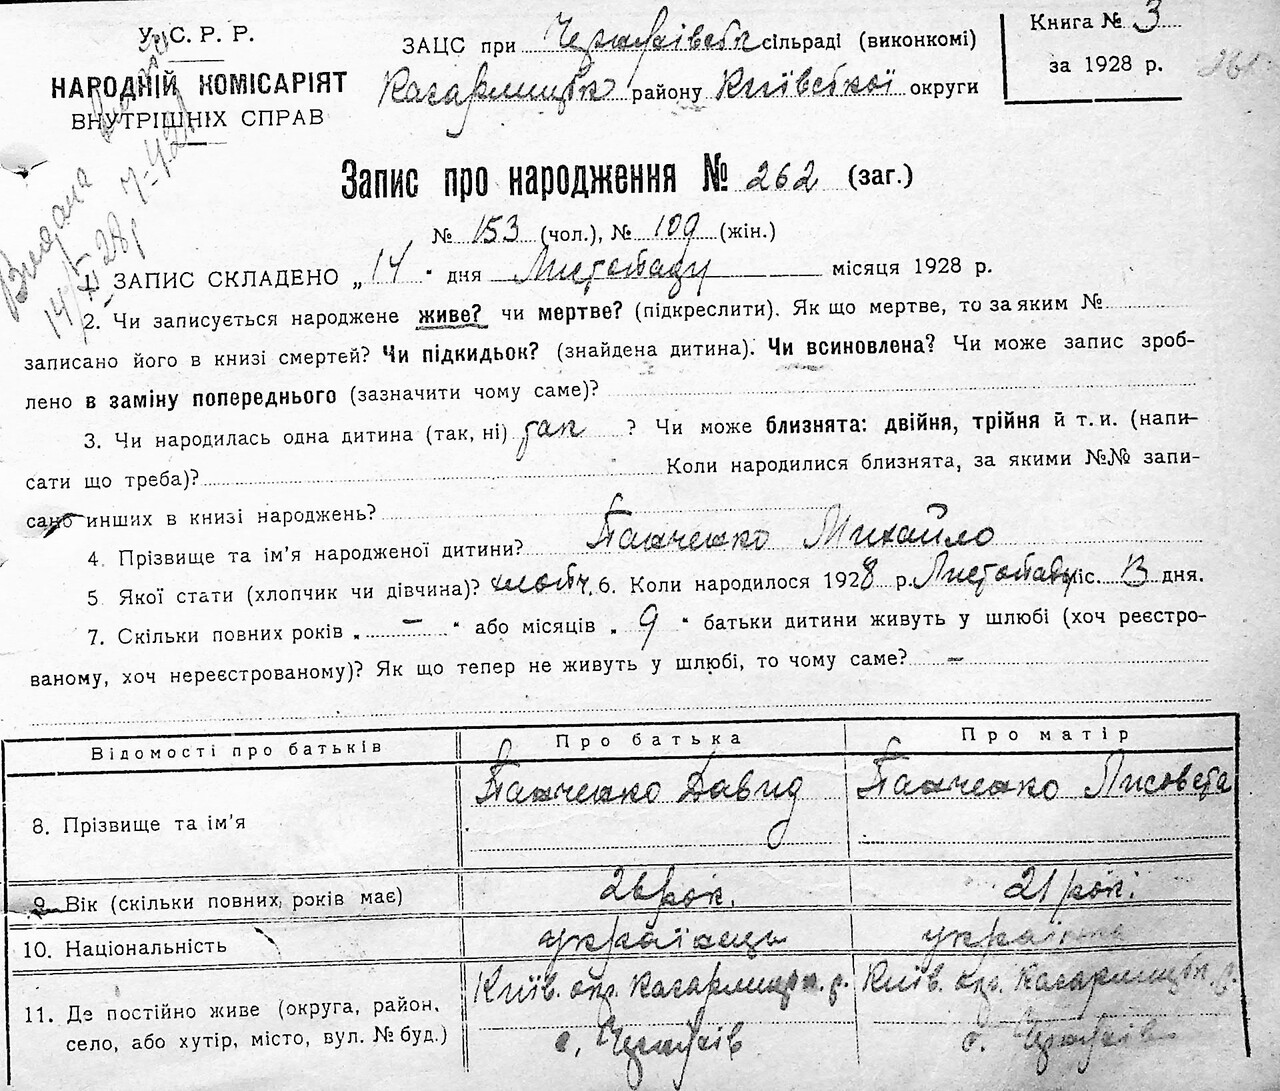 У. С. Р. Р.
НАРОДНІЙ КОМІСАРІЯТ
ВНУТРІШНІХ СПРАВ
ЗАЦС при сільраді (виконкомі)
Кагарлицьк району Київської округи
Книга № 3
за 1928 р.
Видана
Запис про народження № 262 (заг.)
№ 153 (чол.), № 109 (жін.)
1. ЗАПИС СКЛАДЕНО „14“ дня Листопаду місяця 1928 р.
2. Чи записується народжене живе? чи мертве? (підкреслити). Як що мертве, то за яким №
записано його в книзі смертей? Чи підкидьок? (знайдена дитина). Чи всиновлена? Чи може запис зроб-
лено в заміну попереднього (зазначити чому саме)?
3. Чи народилась одна дитина (так, ні) так ? Чи може близнята: двійня, трійня й т. и. (напи-
сати що треба)? Коли народилися близнята, за якими №№ запи-
сано инших в книзі народжень?
4. Прізвище та ім’я народженої дитини? Панченко Михайло
5. Якої стати (хлопчик чи дівчина)? хлопч. 6. Коли народилося 1928 р. Листопаду міс. 13 дня.
7. Скільки повних років „ – “ або місяців „ 9 “ батьки дитини живуть у шлюбі (хоч реєстро-
ваному, хоч нереєстрованому)? Як що тепер не живуть у шлюбі, то чому саме? –
Відомості про батьків Про батька Про матір
8. Прізвище та ім’я Панченко Давид Панченко Лисовета
9. Вік (скільки повних років має) 26 рок. 21 рок.
10. Національність українець українка
11. Де постійно живе (округа, район, Київ. окр. Кагарлицьк. р. Київ. окр. Кагарлицьк. р.
село, або хутір, місто, вул. № буд.) с. с.